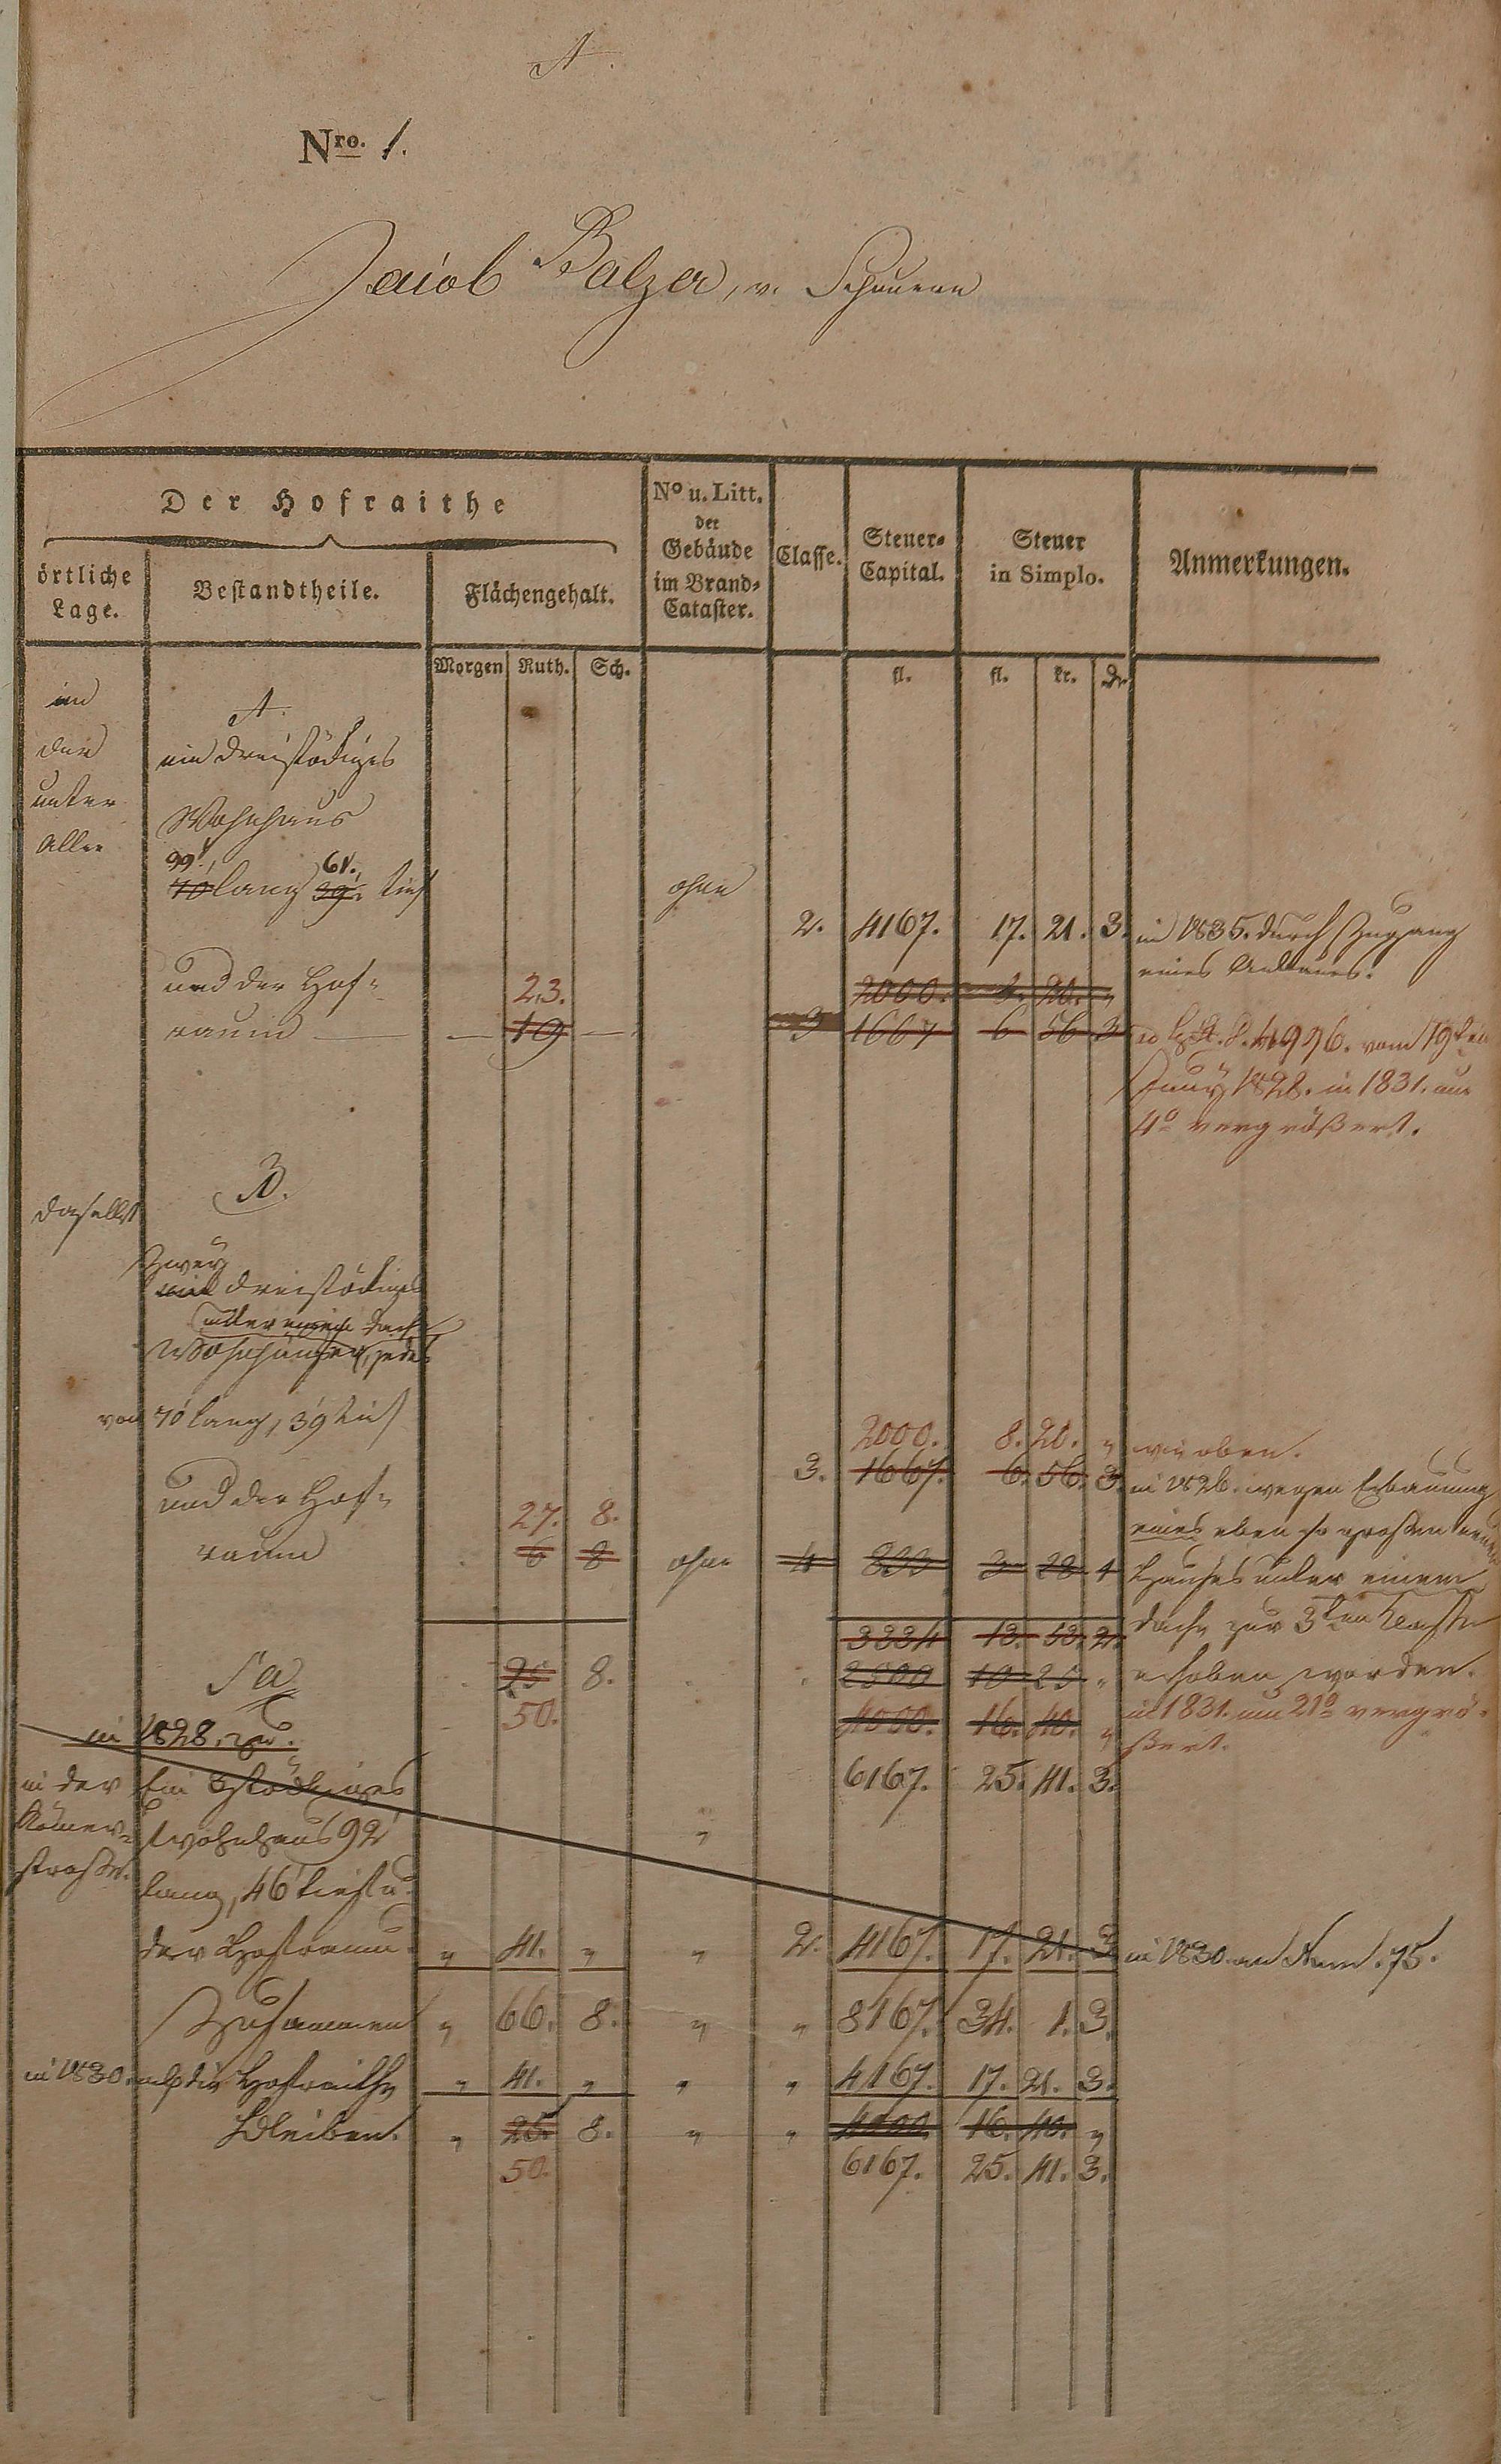 A.
Nro. 1.
Jacob Balzer, v. Schauern
Der Hofraithe
No u. Litt. der Gebäude im Brand-Cataster.
Classe.
Steuer-Capital.
Steuer in Simplo.
Anmerkungen.
örtliche Lage.
Bestandtheile.
Flächengehalt.
Morgen Ruth. Sch. fl. fl. kr. D.
in
der A.
unter ein dreistöckiges
Allee Wohnhaus
99' 61'.
70' lang 39' tief ohne
2. 4167. 17. 21. 3. in 1835. durch Zugang
eines Anbaues.
und der Hof- 23. 2000. 8. 20. "
raum — — 19 — 3 1667 6 56 3
vom 19ten
Juny 1828. in 1831. um
4° vergrößert.
B.
daselbst
Zwey
ein dreistöckiges
unter einem Dache
Wohnhäuser, jedes
von 70' lang, 39' tief
2000. 8. 20. " wie oben.
3. 1667. 6. 56. 3 in 1826. wegen Erbauung
und der Hof- 27. 8. eines eben so großen neuen
raum 6 8 ohne 4 833 3 28 1 Hauses unter einem
3334 13. 53. 2. Dache zur 3ten Classe
Sa 25 8. 2500 10 25 " erhoben worden.
50. 4000. 16. 40. " in 1831. um 21° vergrö-
ßert.
in 1828. zu.
6167. 25. 41. 3.
in der Ein 3stöckiges
Römer- Wohnhaus 92' "
straße. lang, 46' tief u.
der Hofraum " 41. " " 2. 4167. 17. 21. 3 in 1830. an Num. 75.
Zusammen " 66. 8. " " 8167. 34. 1. 3.
in 1830. ab die Hofraithe " 41. " " " 4167. 17. 21. 3.
Bleiben. " 25. 8. " " 4000. 16. 40. "
50. 6167. 25. 41. 3.